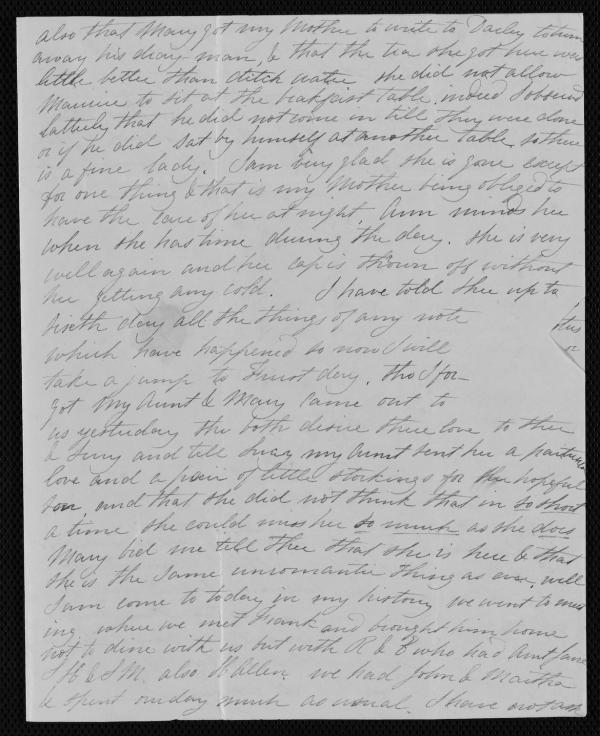 also that Mary got my Mother to write to Darby to turn
away his dray-man, & that the tea she got here was
little better than ditch water she did not allow
Maurice to sit at the breakfast table, indeed I observed
latterly that he did not come in till they were done
or if he did sat by himself at another table, so there
is a fine lady. I am very glad she is gone except
for one thing & that is my Mother being obliged to
have the care of her at night, Ann minds her
when she has time during the day. She is very
well again and her cap is thrown off without
her getting any cold. I have told thee up to
sixth day all the things of any note
which have happened so now I will
take a jump to First day, tho I for-
got My Aunt & Mary came out to
us yesterday tho both desire there love to thee
& and tell my Aunt sent her a particular
love and a pair of little stockings for the hopeful
son, and that she did not think that in so short
a time she could miss her so much as she does
Mary bid me tell thee that she is here & that
she is the same unromantic thing as ever, well
I am come to today in my history, we went to meet
ing, where we met Frank and brought him home
not to dine with us but with R & E who had Aunt Jane
also we had John & Martha
& spent our day much as usual. I have